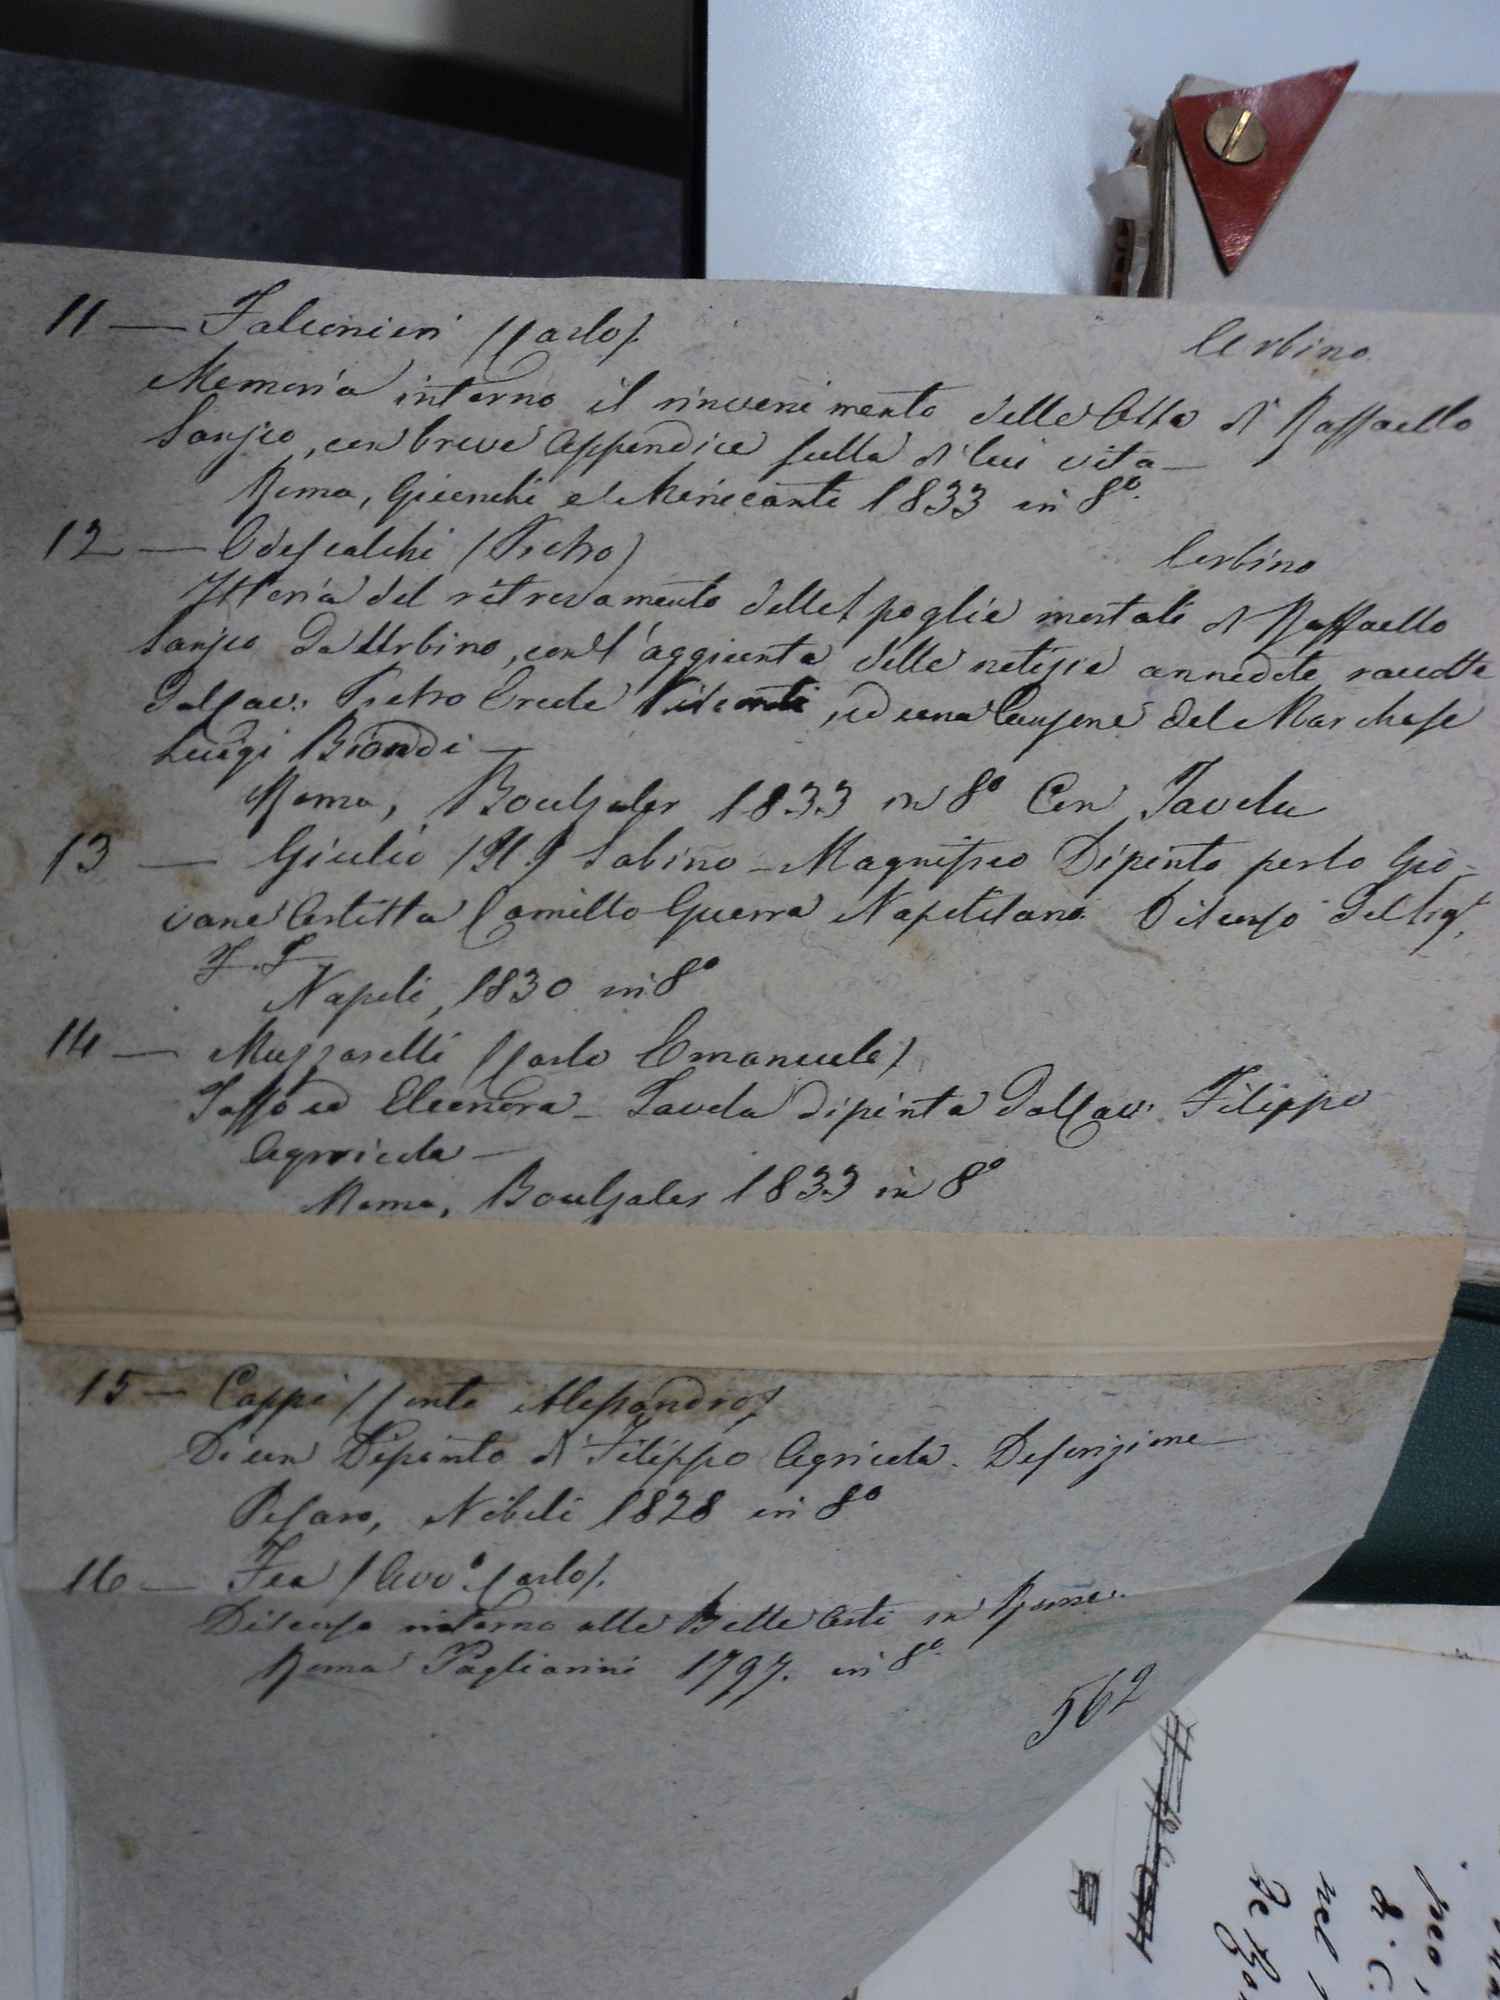 11 — Falconieri (Carlo). Urbino.
Memoria intorno il rinvenimento delle Ossa di Raffaello
Sanzio, con breve Appendice sulla di lui vita —
Roma, Giunchi e Menicanti 1833 in 8º.
12 — Odescalchi (Pietro) Urbino
Istoria del ritrovamento delle spoglie mortali di Raffaello
Sanzio da Urbino, con l'aggiunta delle notizie annedote racolte
dal Cav: Pietro Ercole Visconti, ed una Canzone del Marchese
Luigi Biondi —
Roma, Boulzaler 1833 in 8º Con Tavola
13 — Giulio Sabino — Magnifico Dipinto perlo Gio-
vane Artista Camillo Guerra Napolitano. Discorso del Sigr.
Napoli, 1830 in 8º
14 — Muzzarelli (Carlo Emanuele)
Tasso ed Eleonora — Tavola dipinta dal Cav: Filippo
Agricola —
Roma, Boulzaler 1833 in 8º
15 — Cappi (Conte Alessandro)
Di un Dipinto di Filippo Agricola. Descrizione
Pesaro, Nobili 1828 in 8º
16 — Fea (Avvº. Carlo).
Discorso intorno alle Belle Arti in Roma.
Roma Pagliarini 1797. in 8º.
562
nel